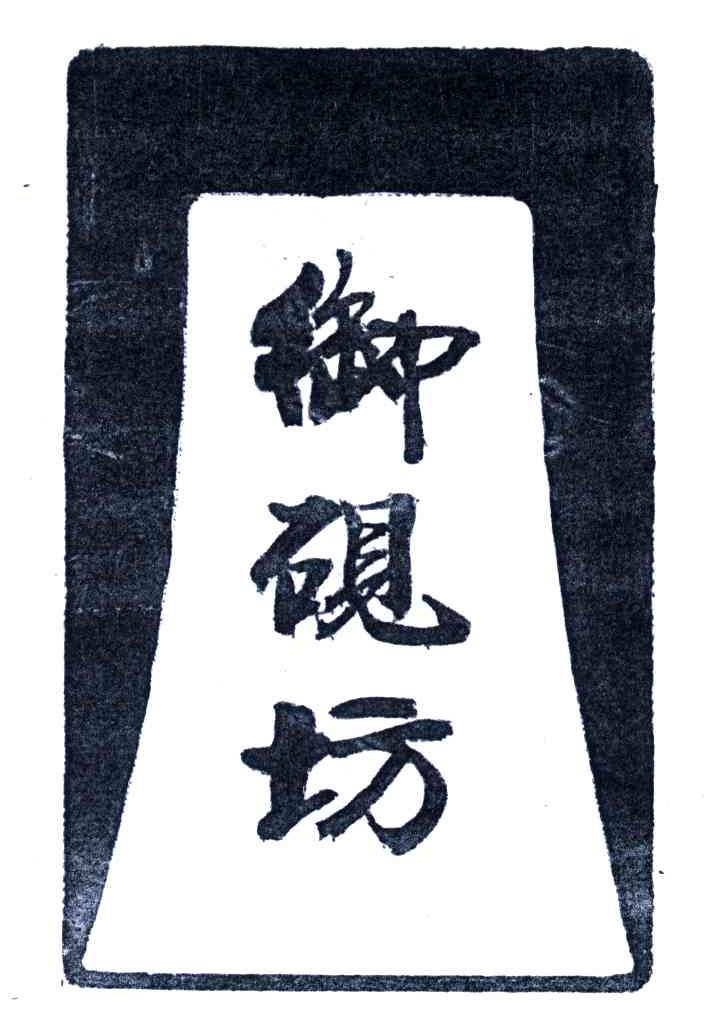 御硯坊